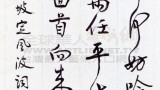 何妨吟
雨任平生
回首向来
坡定風波詞